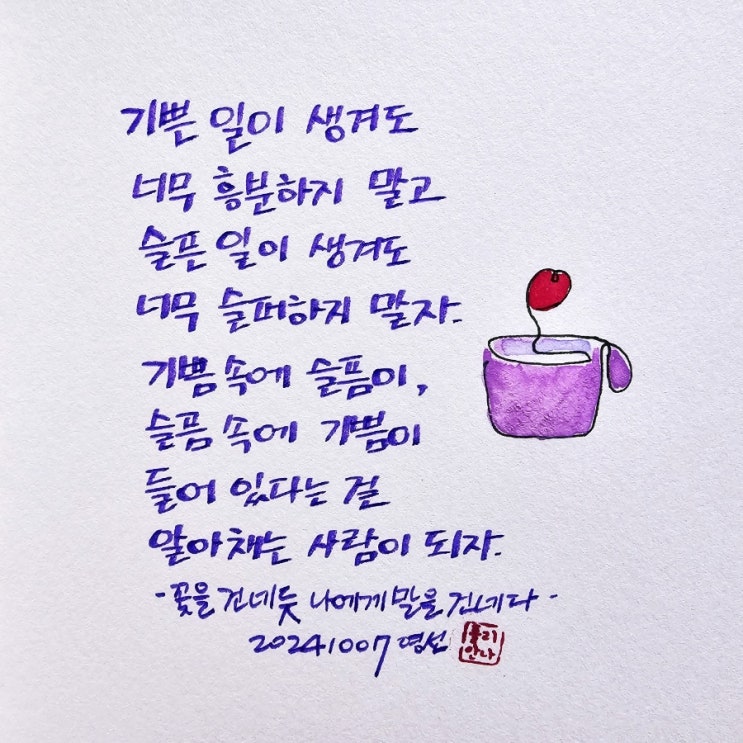 기쁜 일이 생겨도
너무 흥분하지 말고
슬픈 일이 생겨도
너무 슬퍼하지 말자.
기쁨 속에 슬픔이,
슬픔 속에 기쁨이
들어 있다는 걸
알아채는 사람이 되자.
- 꽃을 건네듯 나에게 말을 건네다 -
20241007 영선